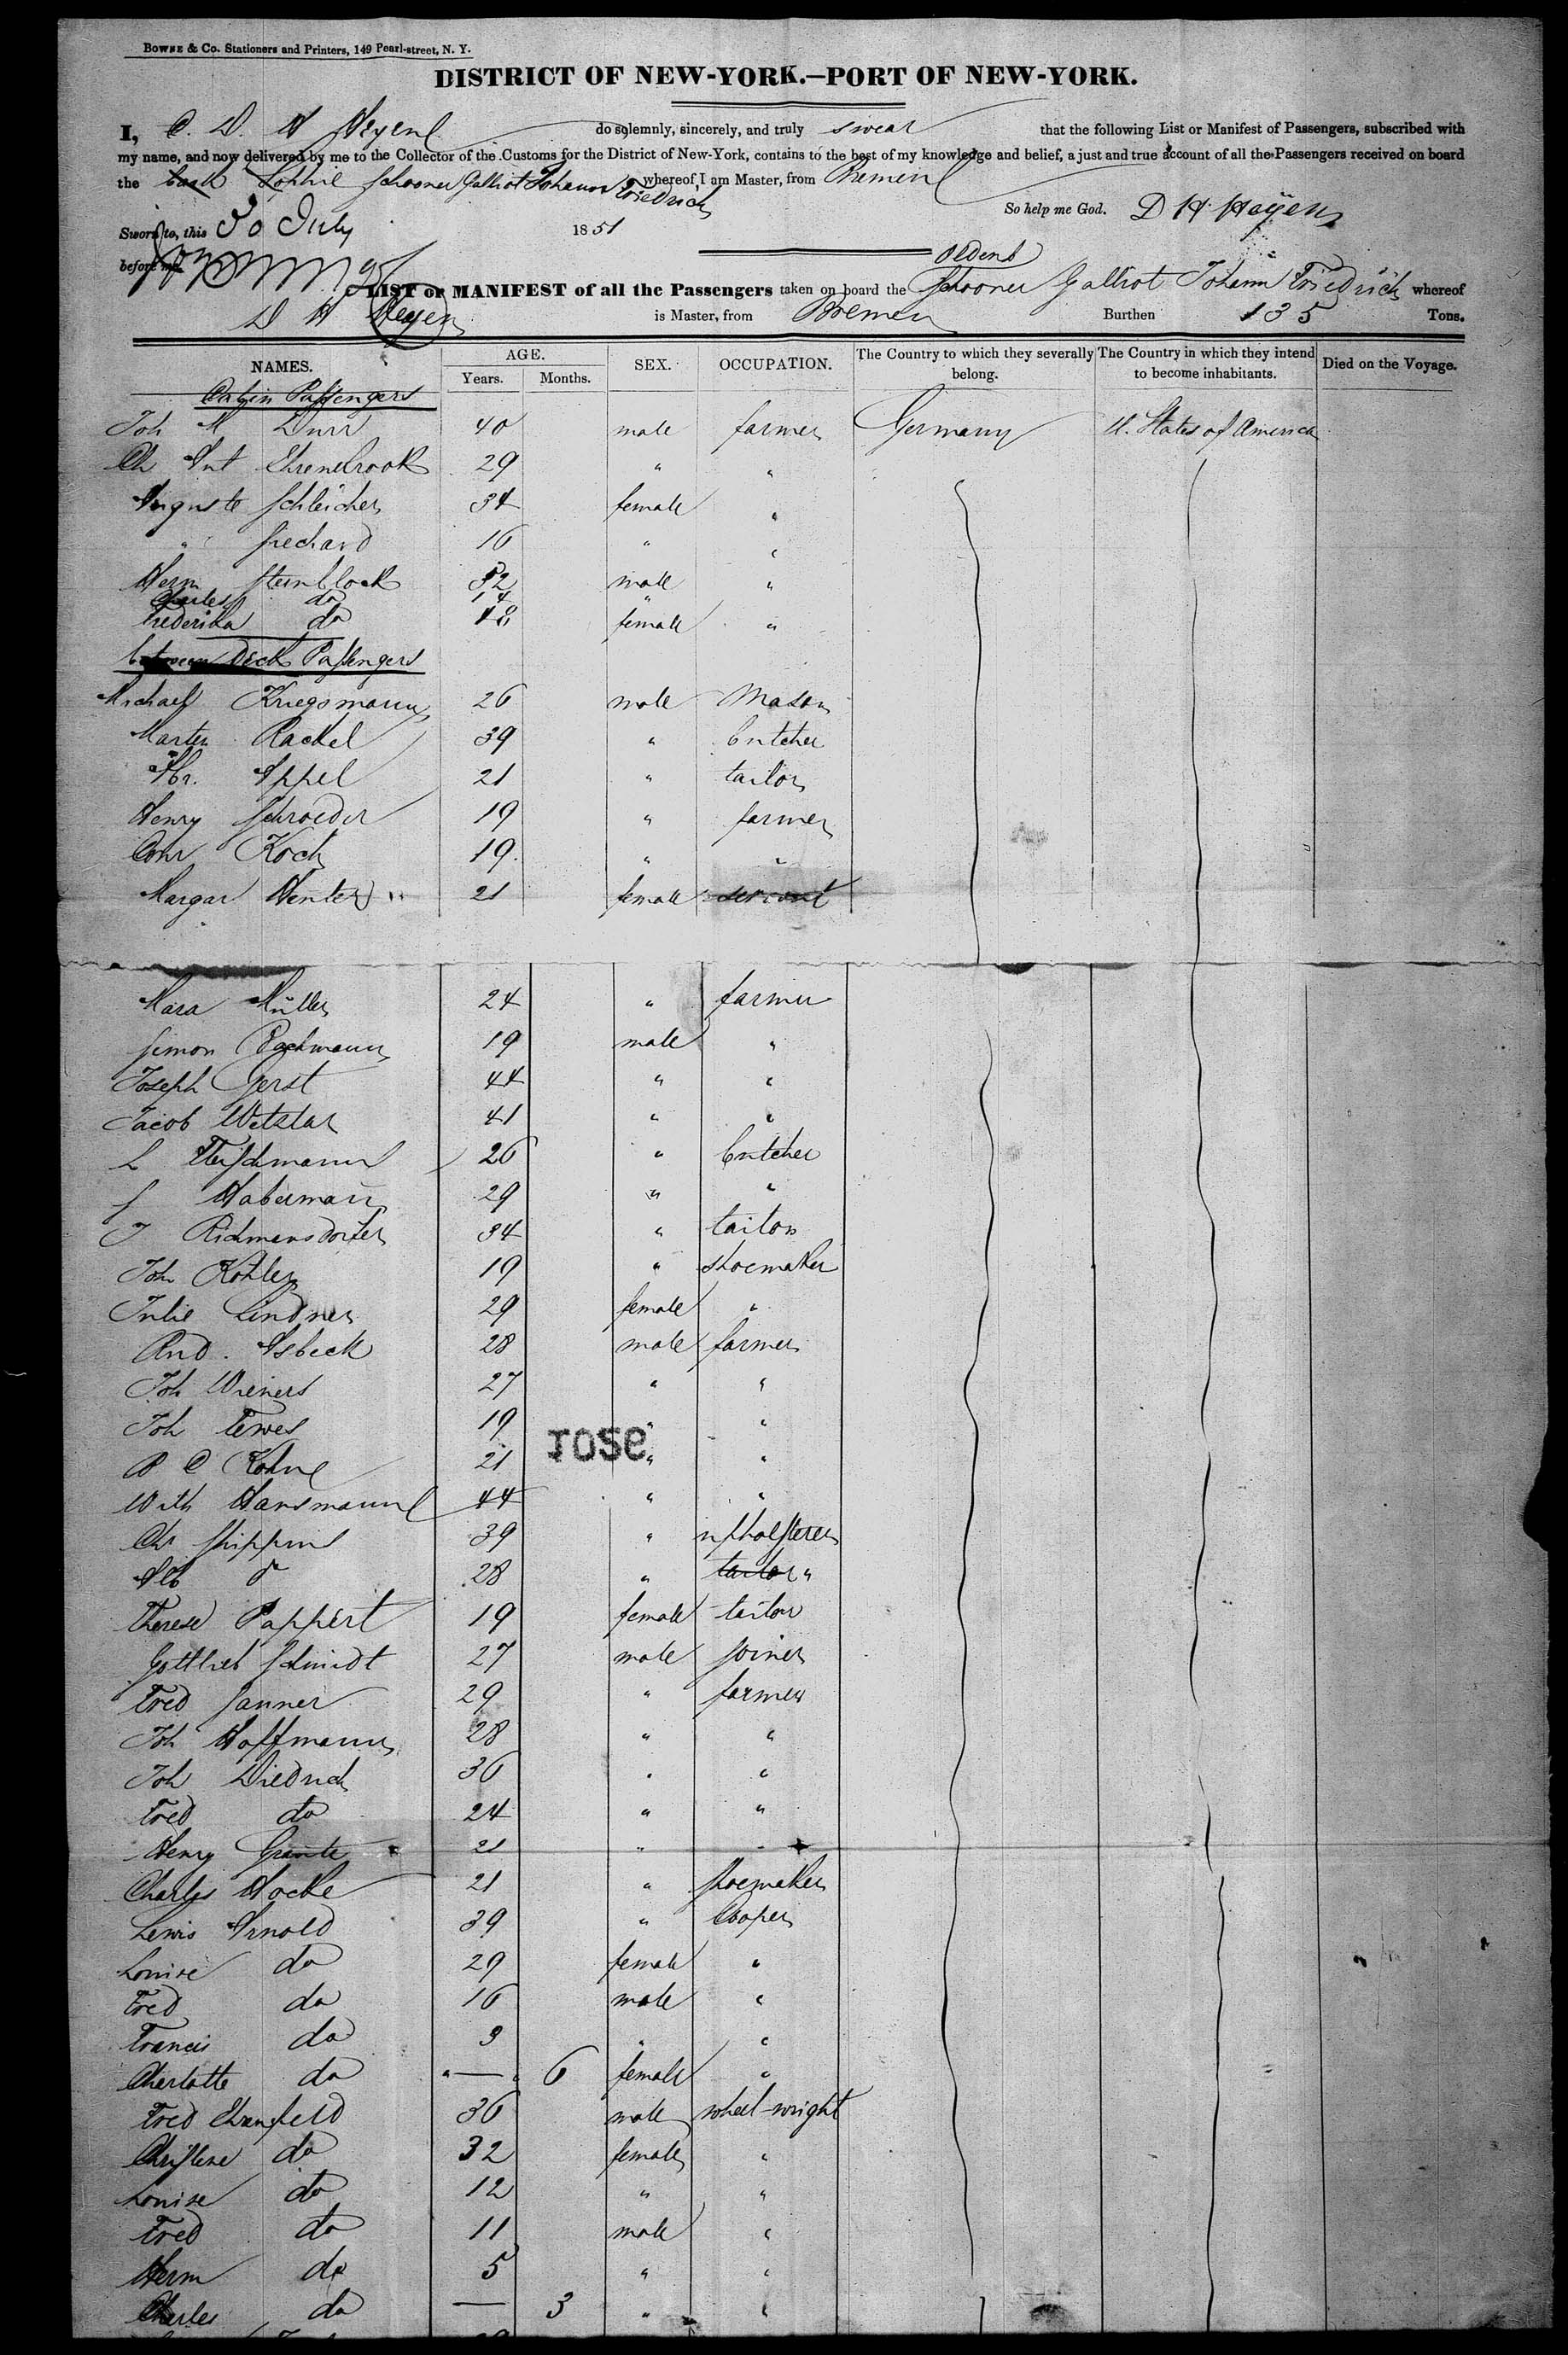 BOWNE & Co. Stationers and Printers, 149 Pearl-street, N. Y.
DISTRICT OF NEW-YORK.—PORT OF NEW-YORK.
I, D. H do solemnly, sincerely, and truly swear that the following List or Manifest of Passengers, subscribed with
my name, and now delivered by me to the Collector of the Customs for the District of New-York, contains to the best of my knowledge and belief, a just and true account of all the Passengers received on board
the Schooner Galliot Johann Friedrich whereof I am Master, from Bremen
So help me God. D H Heÿen
Sworn to, this 30 July 1851
before me
Oldenb
LIST OR MANIFEST of all the Passengers taken on board the Schooner Galliot Johann Friedrich whereof
D H Heyen is Master, from Bremen Burthen 135 Tons.
NAMES. AGE. SEX. OCCUPATION. The Country to which they severally belong. The Country in which they intend to become inhabitants. Died on the Voyage.
Years. Months.
Cabin Passengers
Joh M Durr 40 male farmer Germany U. States of America
Ch Ant Ehrenbrook 29 " "
Auguste Schleicher 34 female "
" Richard 16 " "
Herm Steinblock 52 male "
Charles do 14 "
Frederika do 48 female "
between Deck Passengers
Michael Kriegsmann 26 male Mason
Martin Rackel 39 " butcher
Appel 21 " tailor
Henry Schroeder 19 " farmer
Conr Koch 19 " "
Margar 21 female servant
Mara Müller 24 " farmer
Simon Bachmann 19 male "
Joseph Gerst 44 " "
Jacob Wetzlar 41 " "
L Fleischmann 26 " butcher
S Habermann 29 " "
J 34 " tailor
Joh Kohler 19 " shoemaker
Julie Lindner 29 female "
And. Asbeck 28 male farmer
Joh Wieners 27 " "
Joh Tewes 19 " "
rose
C Kohne 21 " "
Wilh Hansmann 44 " "
Ch 39 " upholsterer
Alb do 28 " tailor "
Therese Pappert 19 female tailor
Gottlieb Schmidt 27 male joiner
Fred Sanner 29 " farmer
Joh Hoffmann 28 " "
Joh Diedrich 36 " "
Fred do 24 " "
Henry Grante 21 "
Charles Hocke 21 " shoemaker
Lewis Arnold 39 " Cooper
Louise do 29 female "
Fred do 16 male "
Francis do 9 " "
Charlotte do — 6 female "
Fred Ehrenfeld 36 male wheel-wright
Christine do 32 female "
Louise do 12 " "
Fred do 11 male "
Herm do 5 " "
Charles do — 3 " "